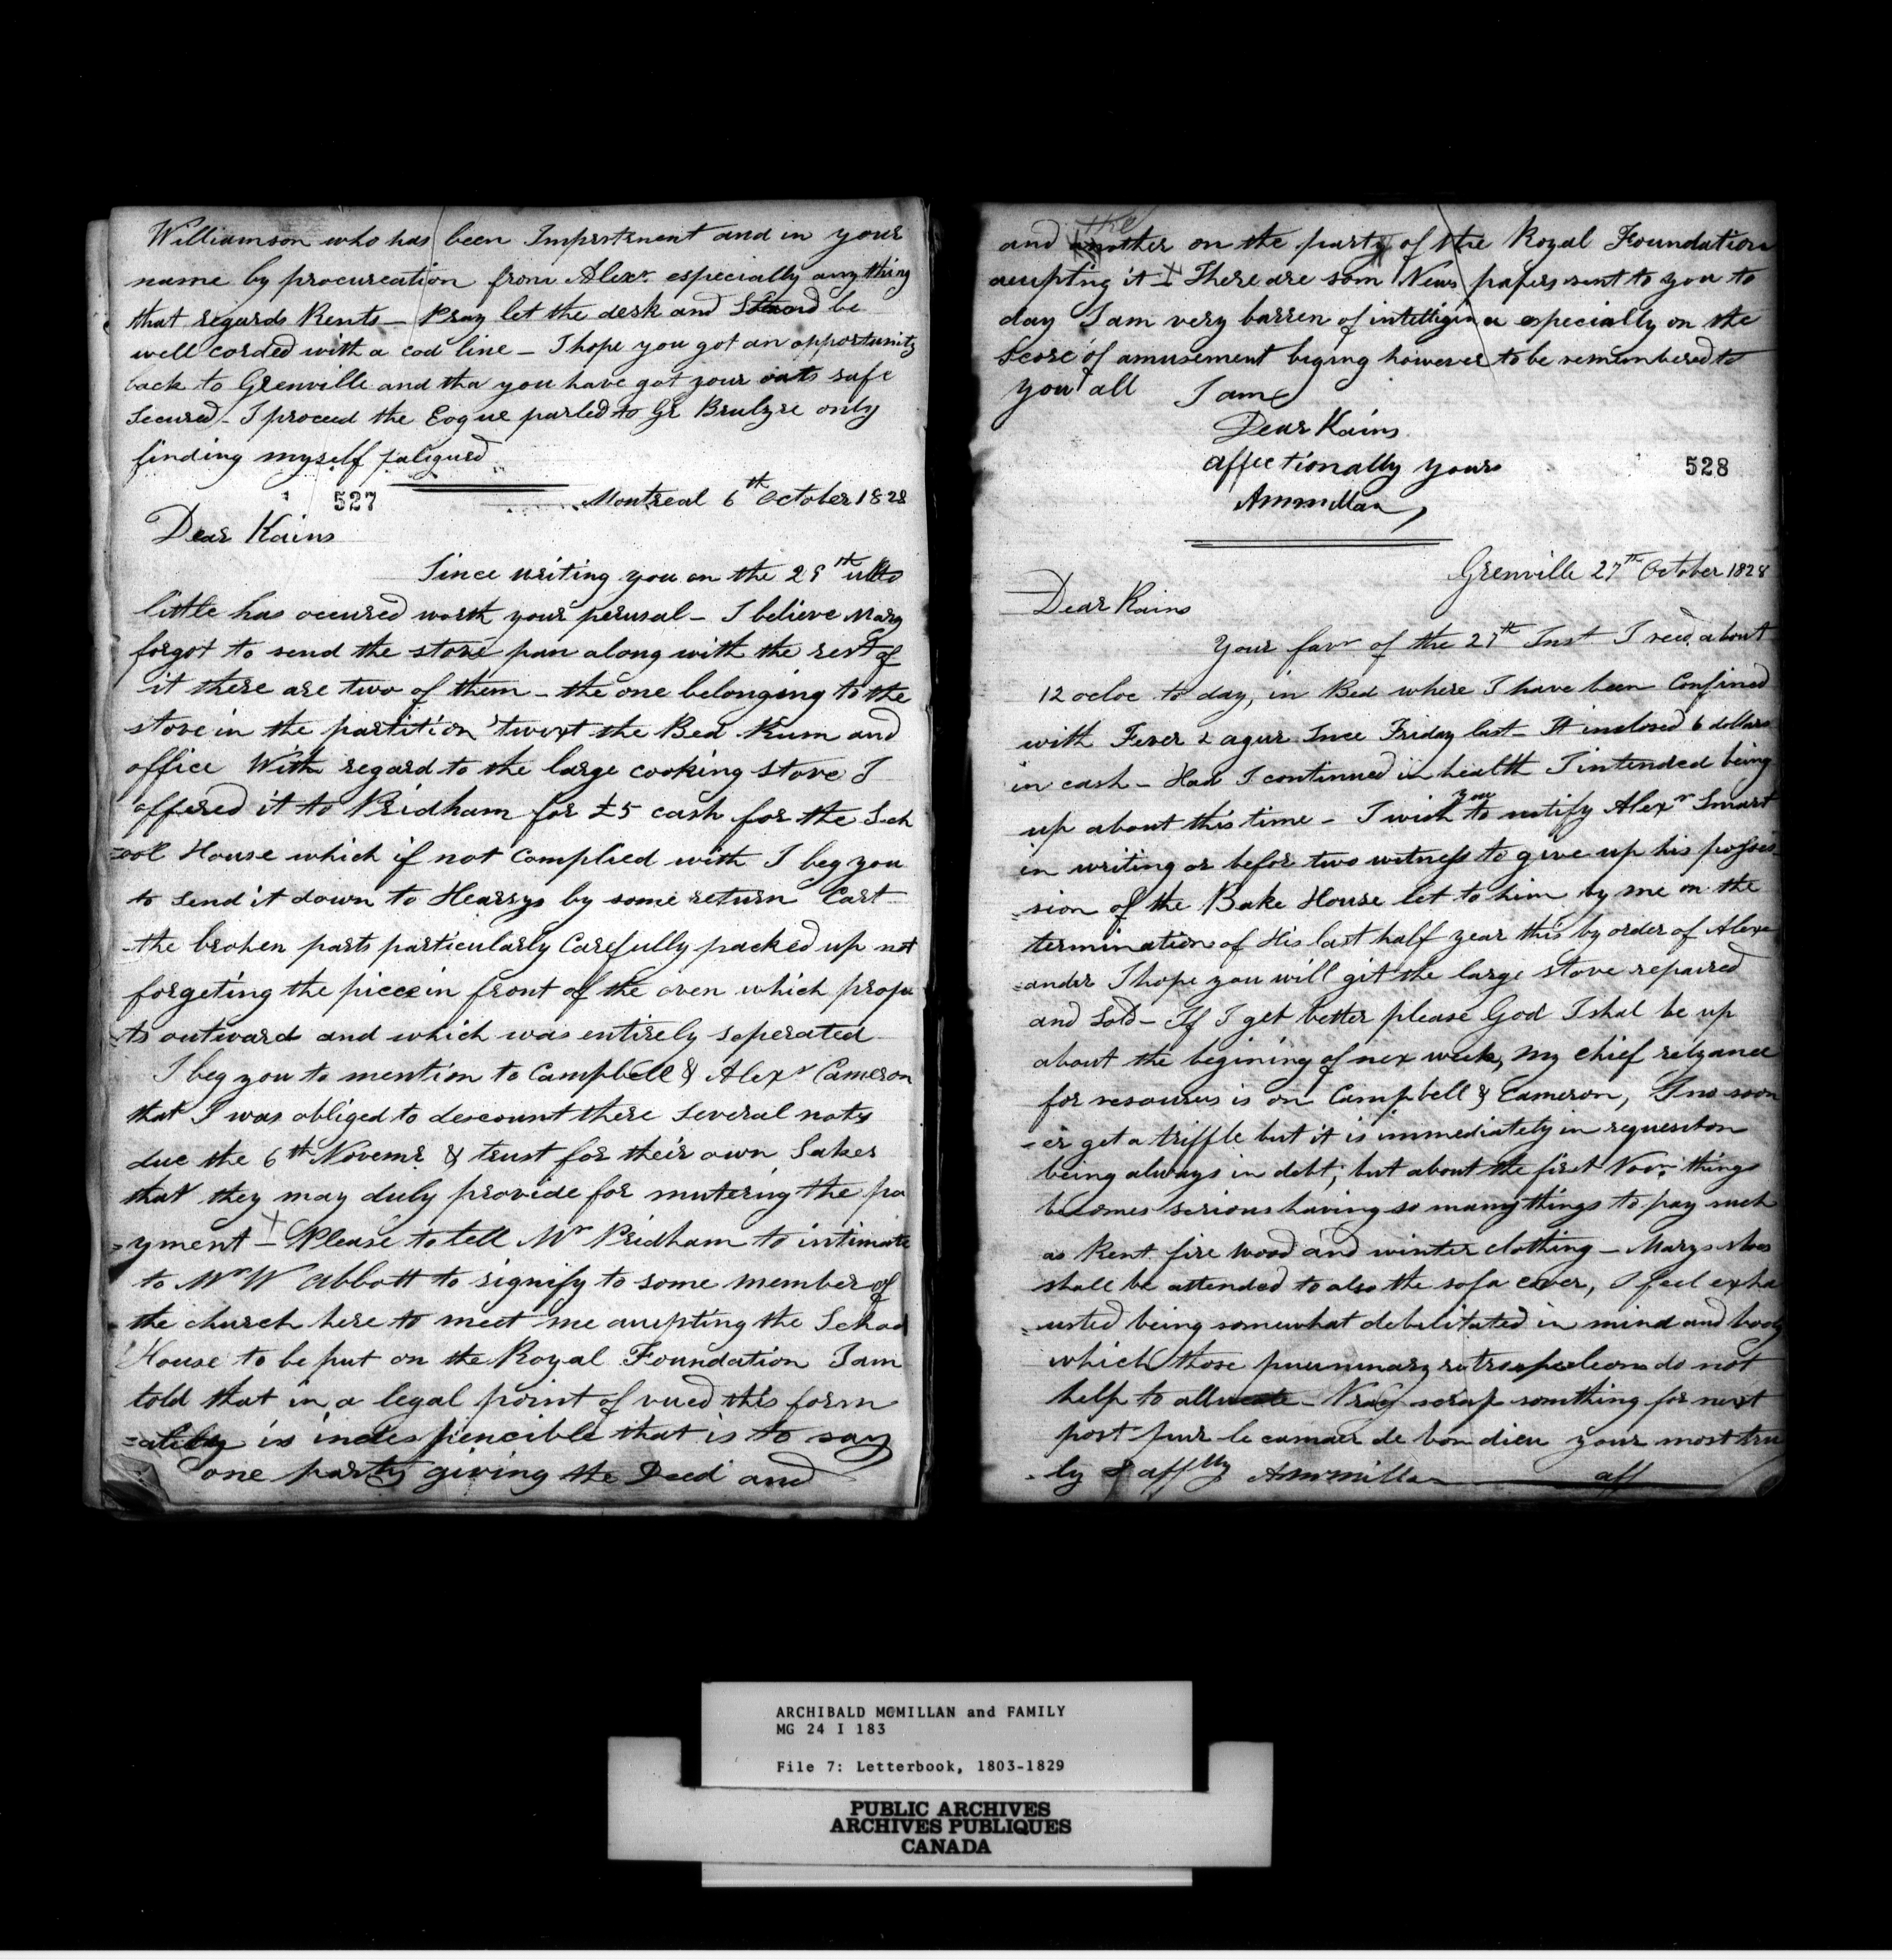 Williamson who has been Impertenent and in your
name by procureation from Alexr. especially any thing
that regards Rents – Pray let the desk and be
well corded with a cod line – I hope you got an opportunity
back to Grenville and tha you have got your oats safe
Secured – I proceed the Eoque parled to Gr Brulyre only
finding myself fatigued
527
Montreal 6th October 1828
Dear Kains
Since writing you on the 29th ulto
little has occured worth your perusal – I believe Mary
forgot to send the stove pan along with the rest of
it there are two of them – the one belonging to the
stove in the partition 'twixt the Bed Rum and
office With regard to the large cooking stove I
offered it to Pridham for £5 cash for the Sch
=ool House which if not Complied with I beg you
to send it down to Hearsys by some return Cart
the broken parts particularly Carefully packed up not
forgeting the piece in front of the oven which proje
ts outward and which was entirely seperated
I beg you to mention to Campbell & Alexr Cameron
that I was obliged to descount there Several notes
due the 6th Novemr. & trust for their own Sakes
that they may duly provide for mutering the pa
=yment – Please to tell Mr Pridham to intimate
to Mr W Abbott to signify to some member of
the church here to meet me aucpting the School
House to be put on the Royal Foundation I am
told that in a legal point of vued this form
=ality is indespencible that is to say
one party giving the Deed and
the
and another on the party of the Royal Foundation
aucpting it – There are som News papers sent to you to
day I am very barren of intelligince especially on the
Score of amusement biging however to be remembered to
you all I am
Dear Kains
affectionally yours
528
AMcmillan
Grenville 27th October 1828
Dear Kains
Your favr of the 27th Inst I recd. about
12 ocloc to day, in Bed where I have been Confined
with Fever & agur Since Friday last – It inclosed 6 dollars
in cash – Had I continued in health I intended being
you
up about this time – I wish to notify Alexr Smart
in writing or befor two witness to give up his posses
=sion of the Bake House let to him by me on the
termination of His last half year this by order of Alexa
=ander I hope you will git the large stove repaired
and Sold – If I get better please God I shal be up
about the begining of nex week, my chief relyance
for resources is on Campbell & Cameron, I no soon
=er get a triffle but it is immediately in requesiton
being always in debt; but about the first Novr. things
becomes serious having so many things to pay such
as Rent fire Wood and winter clothing – Marys shoes
shall be attended to also the sofa cover, I feel exha
=usted being somewhat debilitated in mind and body
which those do not
help to – Pray scrap somthing for next
post pur le camaer de bon dieu your most tru
=ly & affly AMcmillan aff
ARCHIBALD MCMILLAN and FAMILY
MG 24 I 183
File 7: Letterbook, 1803-1829
PUBLIC ARCHIVES
ARCHIVES PUBLIQUES
CANADA